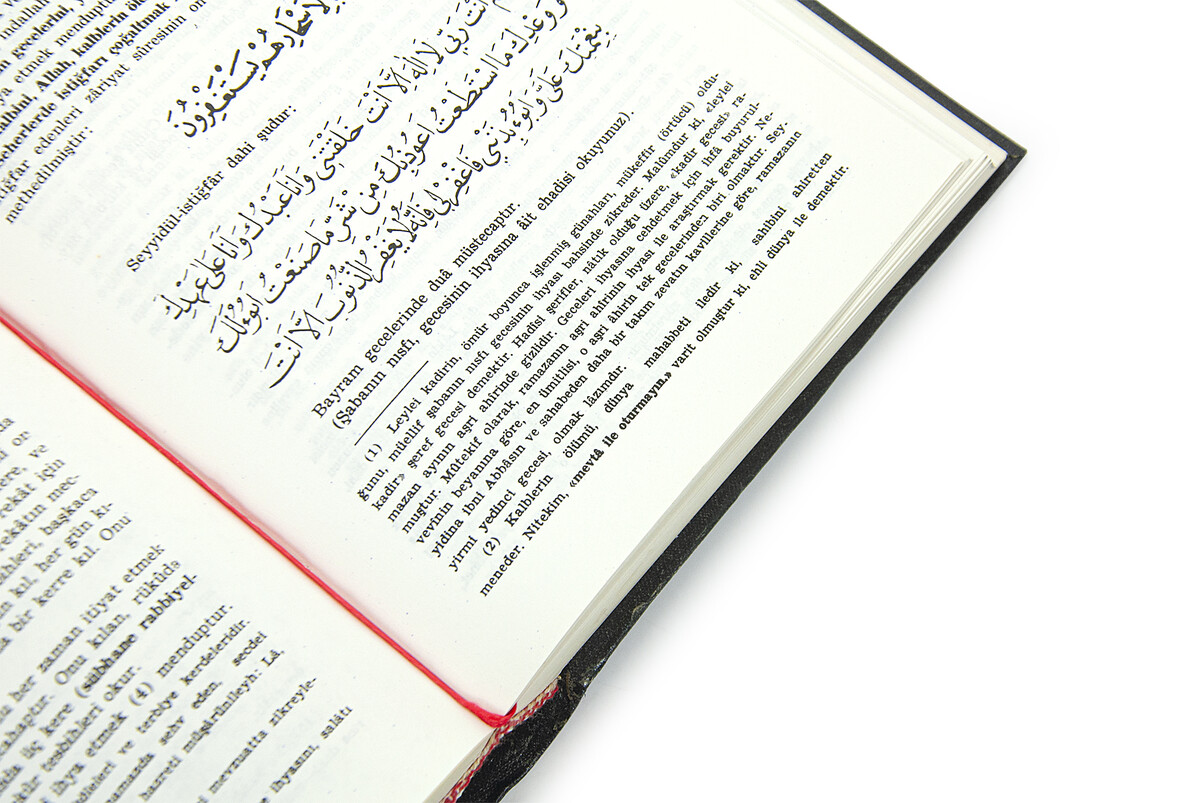 indallah
n gecelerini,
ya etmek mendup
albini, Allah, kalblerin öl
seherlerde istiğfarı çoğaltmak
tiğfar edenleri zâriyat sûresinin on
methedilmiştir:
هُمْ يَسْتَغْفِرُونَ
Seyyidül-istiğfâr dahi şudur:
اَنْتَ رَبِّى لَا اِلٰهَ اِلَّا اَنْتَ خَلَقْتَنِى وَاَنَا عَبْدُكَ وَاَنَا عَلٰى عَهْدِكَ
وَوَعْدِكَ مَا اسْتَطَعْتُ اَعُوذُ بِكَ مِنْ شَرِّ مَا صَنَعْتُ اَبُوءُ لَكَ
بِنِعْمَتِكَ عَلَىَّ وَاَبُوءُ بِذَنْبِى فَاغْفِرْ لِى فَاِنَّهُ لَا يَغْفِرُ الذُّنُوبَ اِلَّا اَنْتَ
Bayram gecelerinde duâ müstecaptır.
(Şabanın nısfı, gecesinin ihyasına âit ehadisi okuyunuz).
(1) Leylei kadirin, ömür boyunca işlenmiş günahları, mükeffir (örtücü) oldu-
ğunu, müellif şabanın nısfı gecesinin ihyası bahsinde zikreder. Malûmdur ki, «leylei
kadir» şeref gecesi demektir. Hadîsi şerifler, nâtık olduğu üzere, «kadir gecesi» ra-
mazan ayının aşri ahîrinde gizlidir. Geceleri ihyasına cehdetmek için ihfâ buyurul-
muştur. Mûtekif olarak, ramazanın aşri ahirinin ihyası ile araştırmak gerektir. Ne-
vevînin beyanına göre, en ümitlisi, o aşri âhirin tek gecelerinden biri olmaktır. Sey-
yidina ibni Abbâsın ve sahabeden daha bir takım zevatın kavillerine göre, ramazanın
yirmi yedinci gecesi, olmak lâzımdır.
(2) Kalblerin ölümü, dünya mahabbeti iledir ki, sahibini âhiretten
meneder. Nitekim, «mevtâ ile oturmayın.» varit olmuştur ki, ehli dünya ile demektir.
da
or
ere, ve
rekât için
rekâtın mec-
hleri, başkaca
n kıl, her gün kı-
a bir kerre kıl. Onu
her zaman itiyat etmek
ahaptır. Onu kılan, rükûda
da üç kere (sübhane rabbiyel-
tesbihleri okur.
ihya etmek (4) menduptur.
ve terbiye kerdeleridir.
namazda sehv eden, secdei
hazreti müşârünileyh: Lâ,
mevzuatta zikreyle-
ihyasını, salâtı